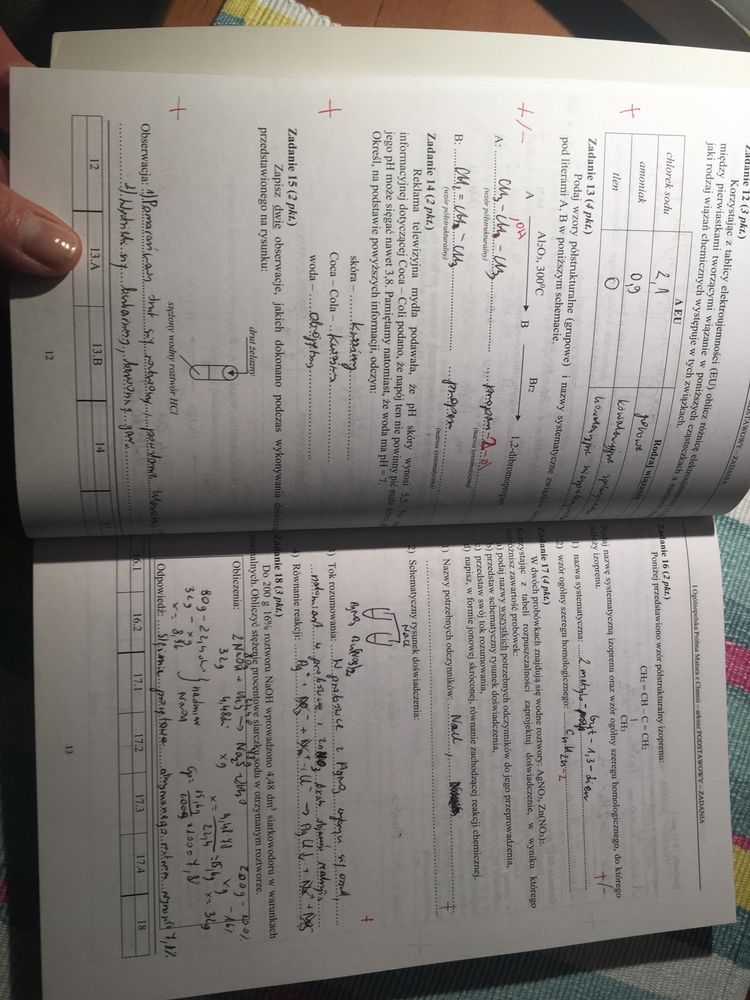 Zadanie 12 (3 pkt.)
Korzystając z tablicy elektroujemności (EU) oblicz różnicę
między pierwiastkami tworzącymi wiązanie w poniższych cząsteczkach, a
jaki rodzaj wiązań chemicznych występuje w tych związkach.
Δ EU
Rodzaj wiązania
chlorek sodu
2,1
jonowe
amoniak
0,9
kowalencyjne
tlen
0
kowalencyjne
+
Zadanie 13 (4 pkt.)
Podaj wzory półstrukturalne (grupowe) i nazwy systematyczne
pod literami A, B w poniższym schemacie.
A
Al2O3, 300°C
B
Br2
1,2-dibromopropan
+/-
OH
A: CH3 - CH2 - CH3
propan-2-ol
(wzór półstrukturalny)
(nazwa systematyczna)
B: CH2 = CH - CH3
propen
(wzór półstrukturalny)
(nazwa systematyczna)
Zadanie 14 (2 pkt.)
Reklama telewizyjna mydła podawała, że pH skóry wynosi 5,5
informacyjnej dotyczącej Coca – Coli podano, że napój ten nie powinny pić małe
jego pH może sięgać nawet 3,8. Pamiętamy natomiast, że woda ma pH = 7.
Określ, na podstawie powyższych informacji, odczyn:
skóra – kwaśny
Coca – Cola – kwaśna
woda – obojętny
+
Zadanie 15 (2 pkt.)
Zapisz dwie obserwacje, jakich dokonano podczas wykonywania
przedstawionego na rysunku:
drut żelazny
stężony wodny roztwór HCl
+
Obserwacja: 1)
2) Wydziela się bezbarwny, bezwonny gaz
12
13.A
13.B
14
12
I Ogólnopolska Próbna Matura z Chemii – arkusz PODSTAWOWY – ZADANIA
Zadanie 16 (2 pkt.)
Poniżej przedstawiono wzór półstrukturalny izoprenu:
CH2 = CH – C = CH2
CH3
nazwę systematyczną izoprenu oraz wzór ogólny szeregu homologicznego, do którego
należy izopren.
1) nazwa systematyczna: 2 metylo - but - 1,3 - dien
2) wzór ogólny szeregu homologicznego: CnH2n-2
+/-
Zadanie 17 (4 pkt.)
W dwóch probówkach znajdują się wodne roztwory: AgNO3, Zn(NO3)2.
Korzystając z tabeli rozpuszczalności zaprojektuj doświadczenie, w wyniku którego
rozróżnisz zawartość probówek.
a) podaj nazwy wszystkich potrzebnych odczynników do jego przeprowadzenia,
b) przedstaw schematyczny rysunek doświadczenia,
c) przedstaw swój tok rozumowania,
d) napisz, w formie jonowej skróconej, równanie zachodzącej reakcji chemicznej.
1) Nazwy potrzebnych odczynników NaCl
+
2) Schematyczny rysunek doświadczenia:
NaCl
3) Tok rozumowania: W probówce z AgNO3 wytrąci się osad,
natomiast w probówce
+
4) Równanie reakcji: Ag+ + NO3- + Na+ + Cl- → AgCl↓ + Na+ + NO3-
Zadanie 18 (3 pkt.)
Do 200 g 16% roztworu NaOH wprowadzono 4,48 dm3 siarkowodoru w warunkach
normalnych. Obliczyć stężenie procentowe siarczku sodu w otrzymanym roztworze.
Obliczenia:
2NaOH + H2S → Na2S + 2H2O
32g
4,48dm
x g
200g - 100%
x g - 16%
x = 32g
80g - 22,4dm
32g - x g
x = 8,96
nadmiar
NaOH
Odpowiedź: Stężenie procentowe otrzymanego roztworu wynosi 7,8%
16.1
16.2
17.1
17.2
17.3
17.4
18
13